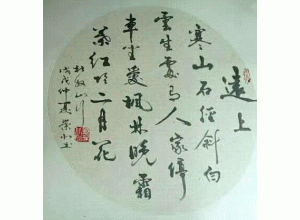 遠上
寒山石徑斜白
雲生處有人家停
車坐愛楓林晚霜
葉紅於二月花
杜牧山行
戊戌仲夏